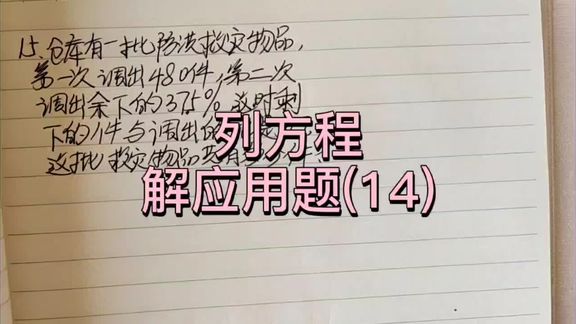 15.仓库有一批防洪救灾物品,
第一次调出480件,第二次
调出余下的37.5%,这时剩
下的件与调出的
这批救灾物品
列方程
解应用题(14)